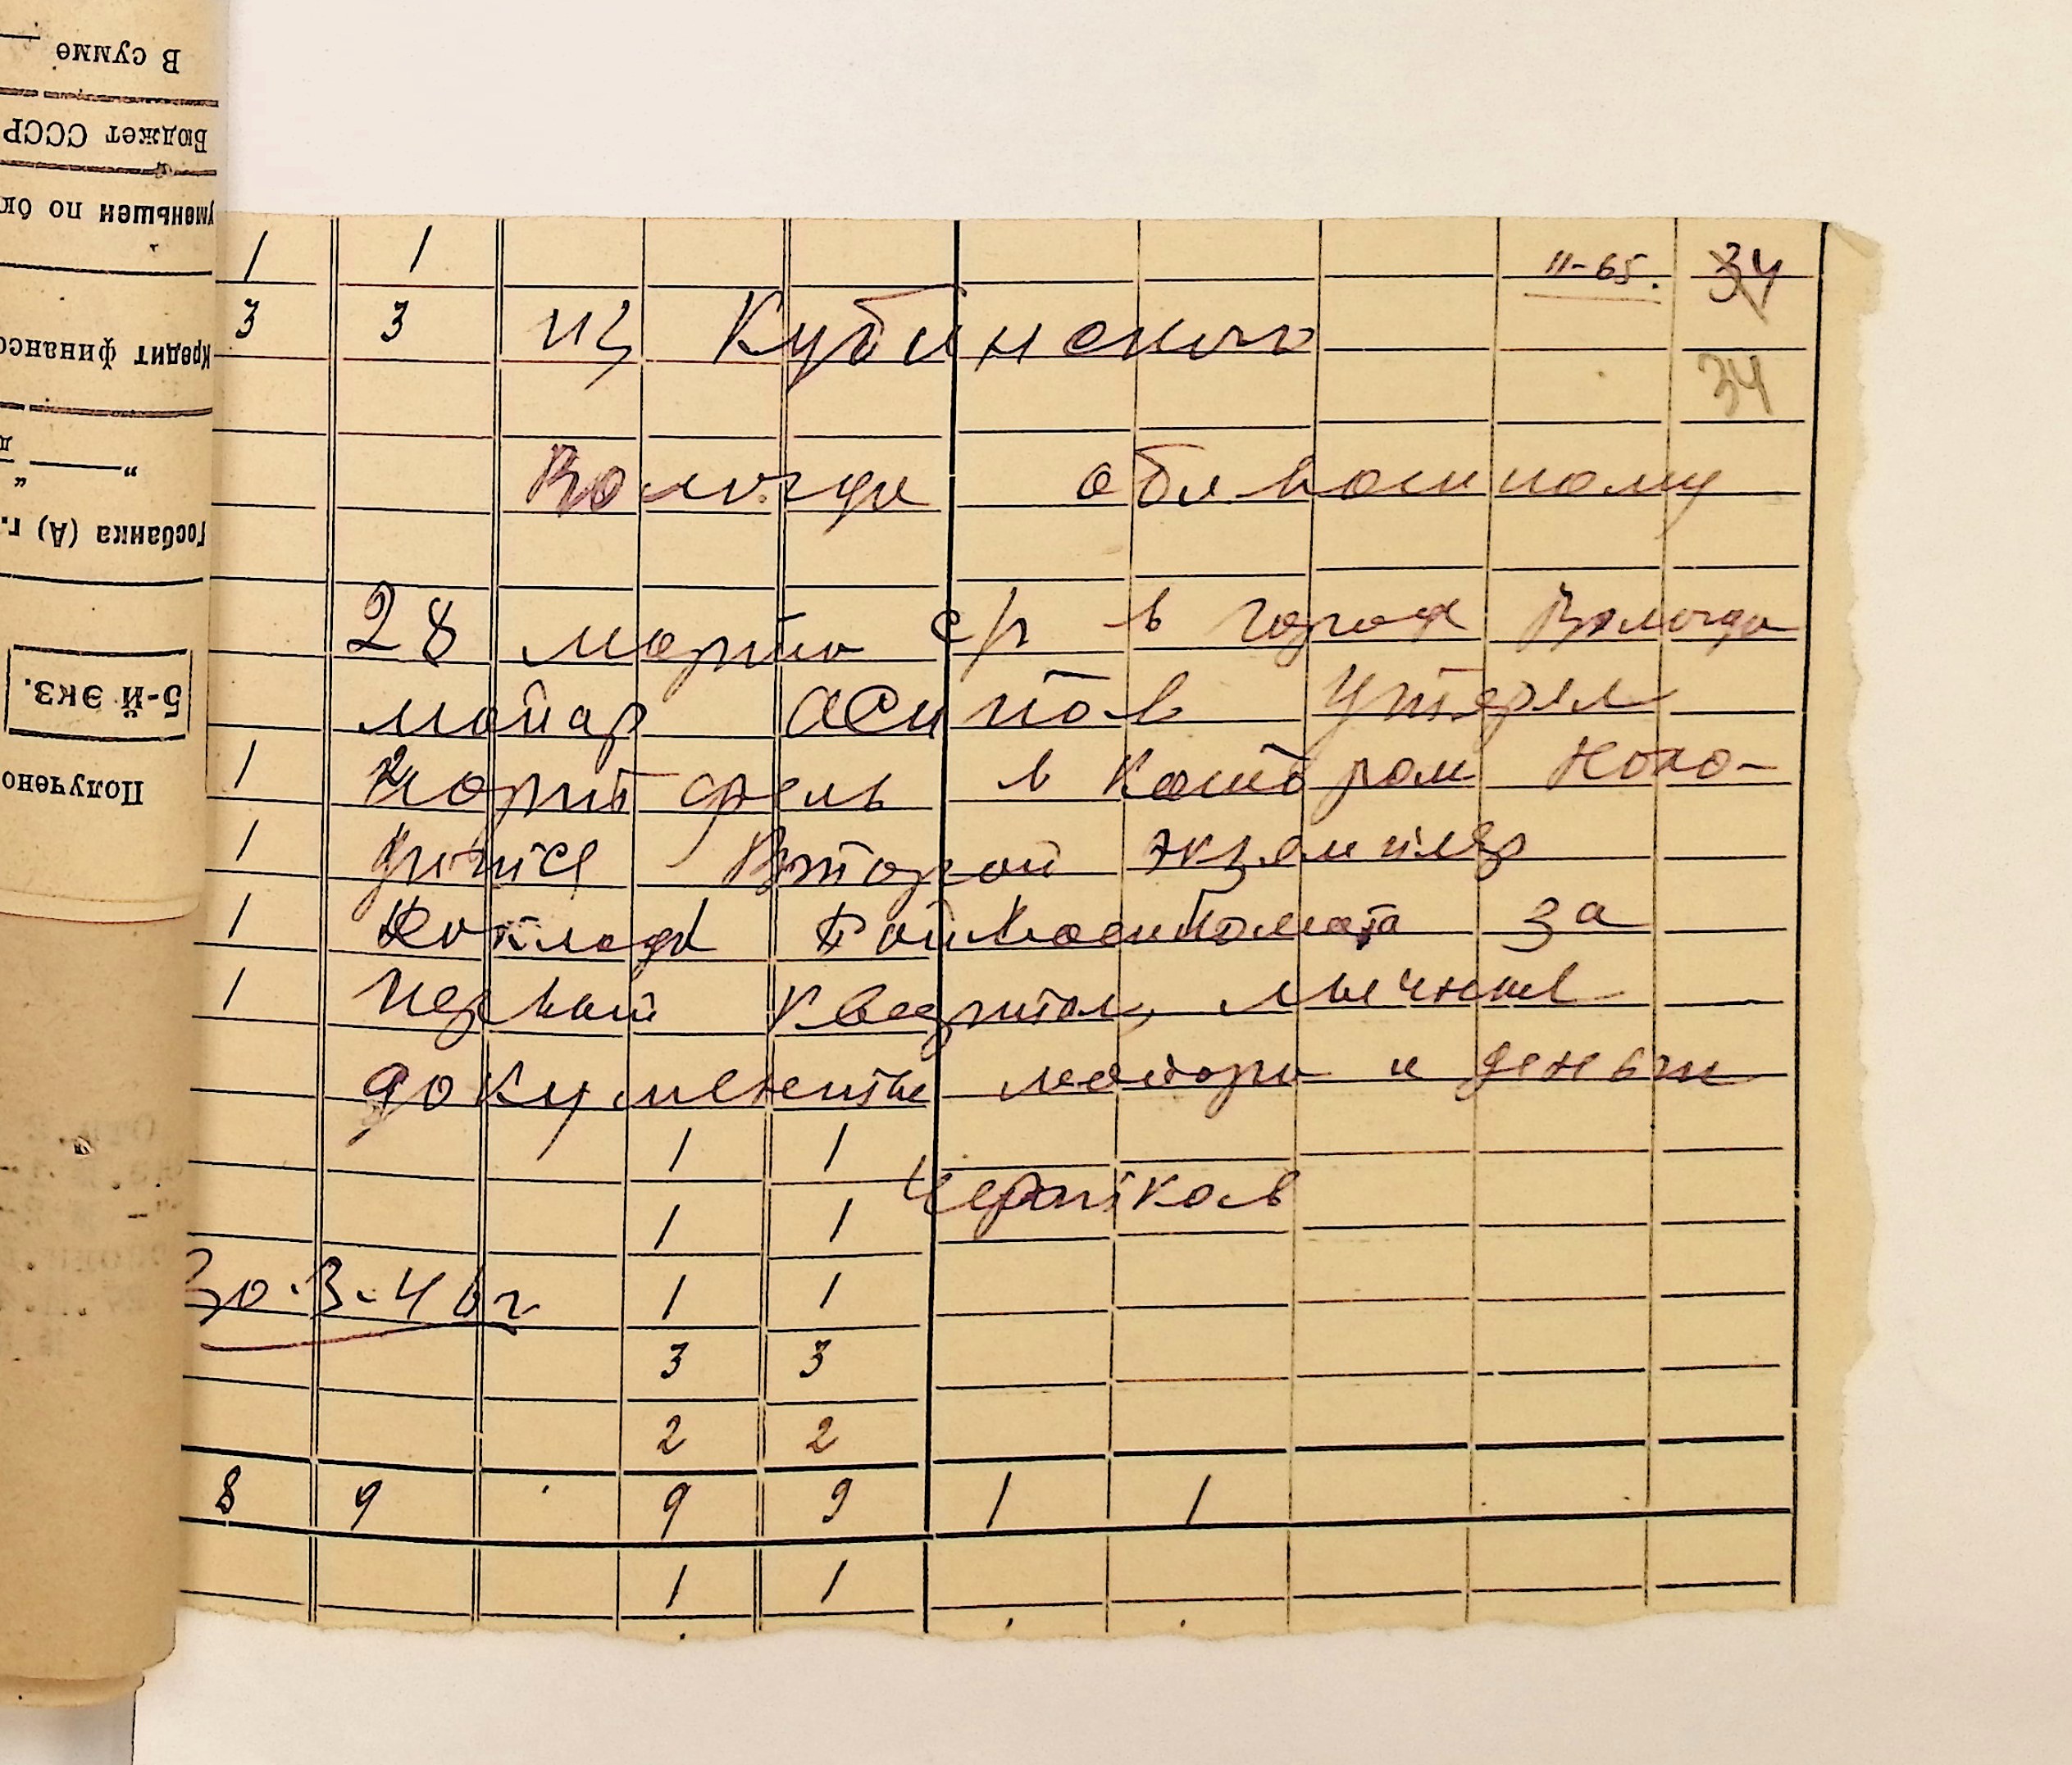 В сумме
Бюджет СССР
уменьшен по ок
Кредит финансо
Госбанка (А) г.
5-й экз.
Получено
1 1 11-65. 34
3 3 из Кубинского
34
Вологда облвоенкому
28 марта с/г в город Вологда
майор Осипов утерял
1 портфель в котором нахо-
1 дится второй экземпляр
1 доклада Райвоенкомата за
1 первый квартал, личные
документы майора и деньги
1 1
Чертков
1 1
30-3-46г 1 1
3 3
2 2
8 9 9 9 1 1
1 1